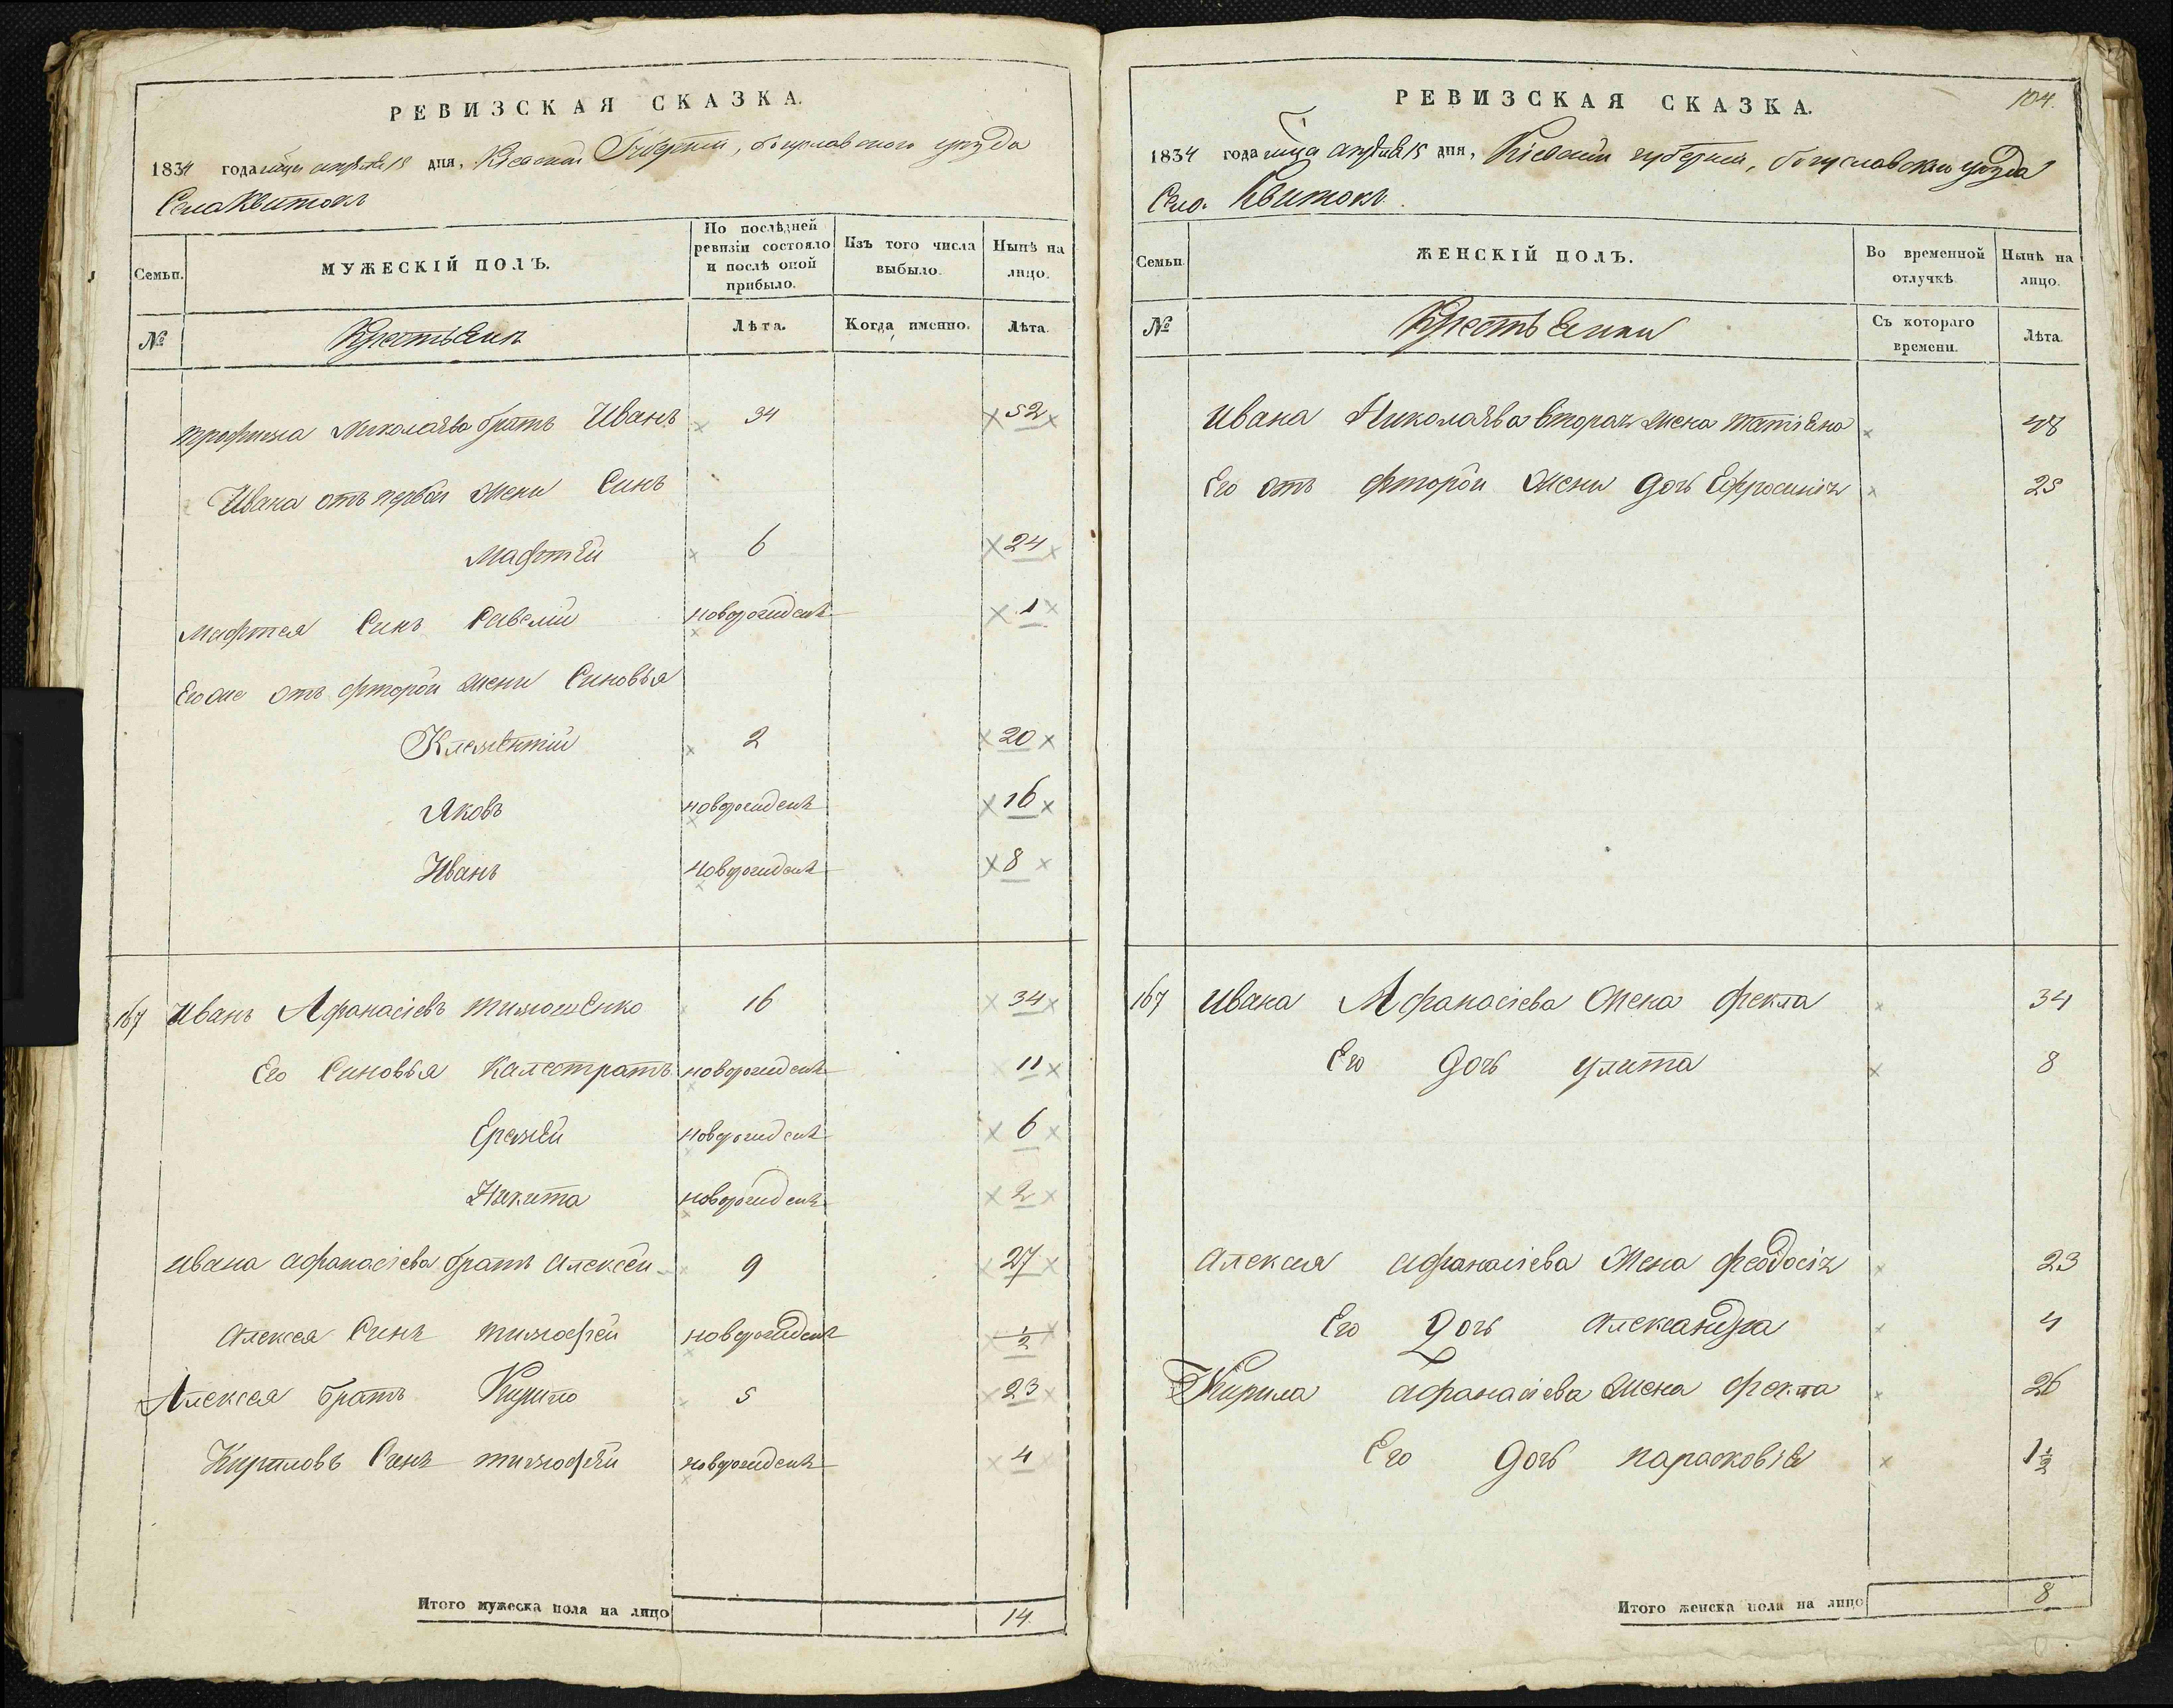 РЕВИЗСКАЯ СКАЗКА.
1834 года мца апреля 15 дня, Киевской Губернии, богуславского уезда
Села Квитокъ
Семьи.
МУЖЕСКІЙ ПОЛЪ.
По послѣдней ревизіи состояло и послѣ оной прибыло.
Изъ того числа выбыло.
Нынѣ на лицо.
№
Крестьянъ
Лѣта.
Когда именно.
Лѣта.
трофима Николаева братъ Иванъ 34 52
Ивана отъ первой жени Синъ
Мафтей 6 24
Мафтея Синъ Савелій новорожденъ 1
Его же отъ фторой жени Синовья
Климентій 2 20
Яковъ новорожденъ 16
Иванъ новорожденъ 8
167 Иванъ Афанасіевъ тимошенко 16 34
Его Синовья Калстратъ новорожденъ 11
Еремей новорожденъ 6
Никита новорожденъ 2
Ивана афанасіева братъ алексей 9 27
Алексея Синъ тимофей новорожденъ 1/2
Алексея братъ Кирило 5 23
Кириловъ Синъ тимофей новорожденъ 4
Итого мужеска пола на лицо 14
РЕВИЗСКАЯ СКАЗКА.
104.
1834 года мца апреля 15 дня, Кіевской губерніи, богуславского уезда
Село. Квитокъ.
Семьи
ЖЕНСКІЙ ПОЛЪ.
Во временной отлучкѣ
Нынѣ на лицо.
№
Крестьянки
Съ котораго времени.
Лѣта.
Ивана Николаева вторая жена татіяна 48
Его отъ фторой жени дочь Ефросинія 25
167 Ивана Афанасіева жена фекла 34
Его дочь улита 8
Алексея афанасіева жена феодосія 23
Его дочь александра 4
Кирила афанасіева жена фекла 26
Его дочь парасковія 1 1/2
Итого женска пола на лицо 8